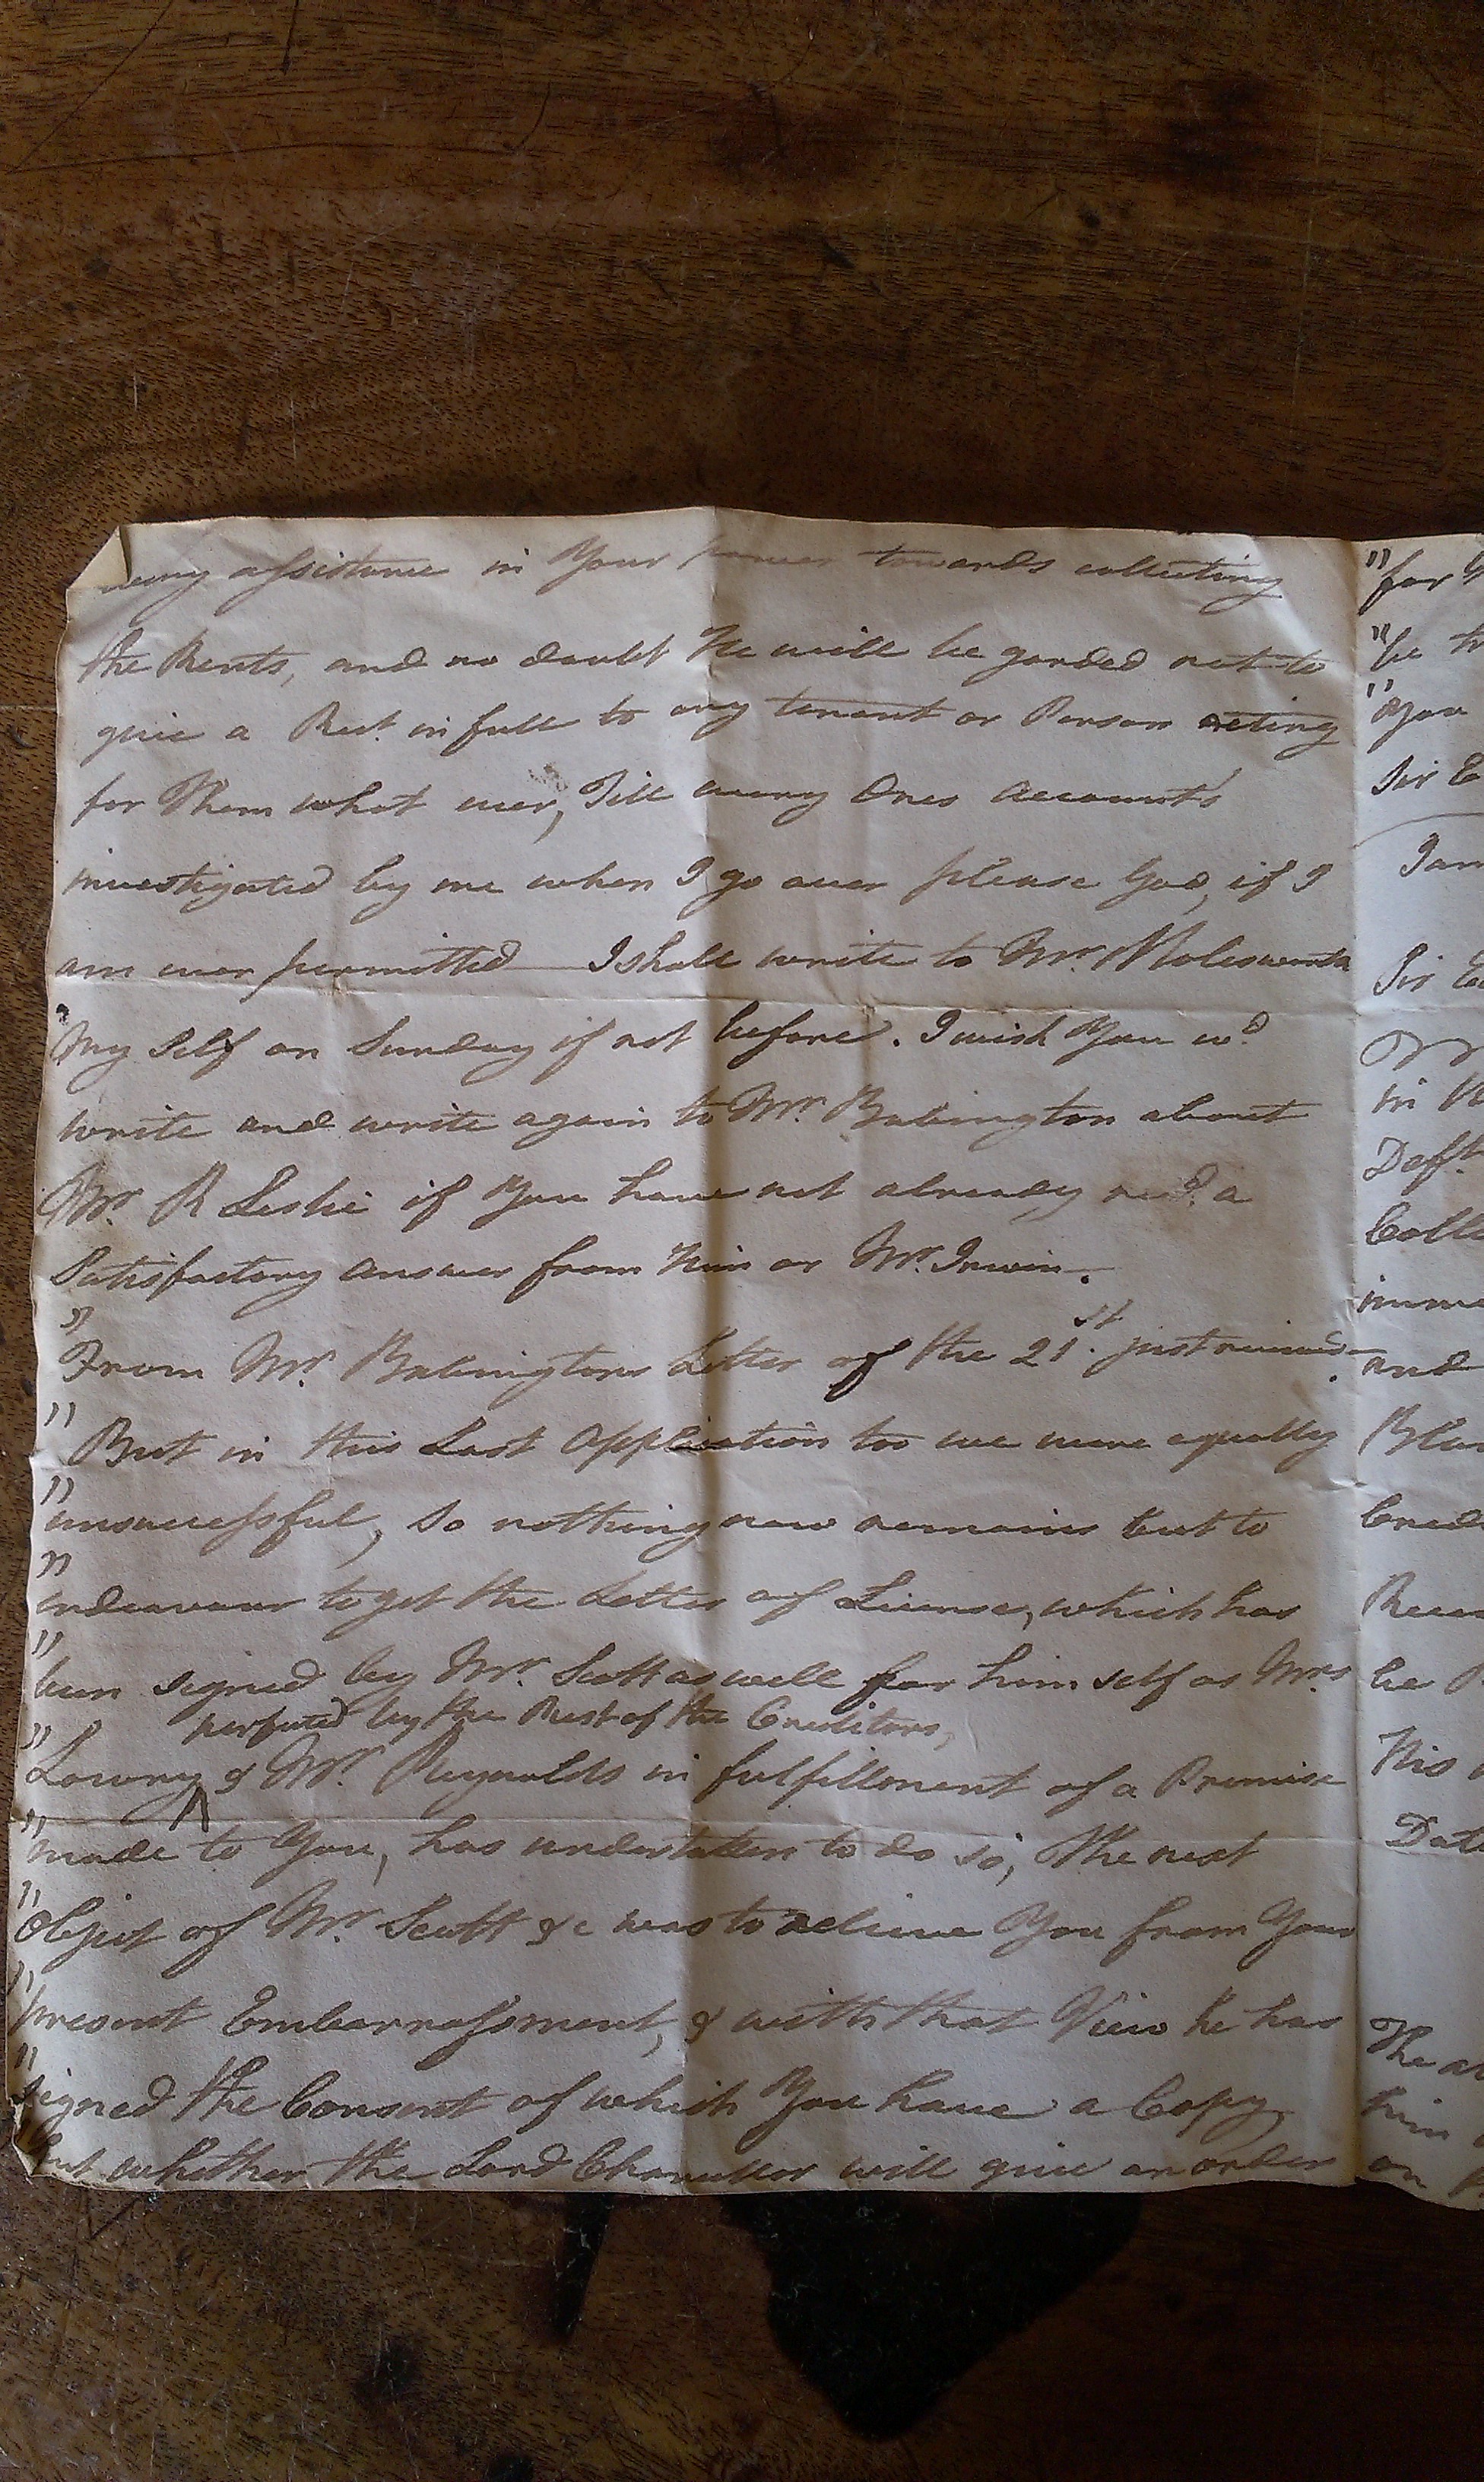 every assistance in Your power towards collecting
the Rents, and no doubt He will be garded not to
give a Rect. in full to any tenant or Person acting
for Them what ever, Till every Ones accounts
investigated by me when I go over please God, if I
am ever permitted — I shall write to Mr. Molesworth
My Self on Sunday if not before. I wish You wd
write and write again to Mr. Babington about
Mr. R Leslie if You have not already recd. a
Satisfactory answer from Him or Mr. Irwin.
" From Mr. Babingtons Letter of the 21st. just received.
" But in this Last Application too we were equally
" unsuccessful, So nothing now remains but to
" endeavour to get the Letter of License, which has
" been signed by Mr. Scott as well for him self as Mrs
perfected by the Rest of the Creditors,
" Lowry ^ & Mr. Reynolds in fulfillment of a Promise
" made to You, has undertaken to do so, The next
" Object of Mr. Scott &c was to relieve You from Your
" present Embarrassment, & with that View he has
" signed the Consent of which You have a Copy
but whether the Lord Chancellor will give an order
" for
" be
" You
Sir
I am
Sir
in
Deft.
Colle
imme
and
Bla
Cred
Rece
be
His
Date
The
him
on